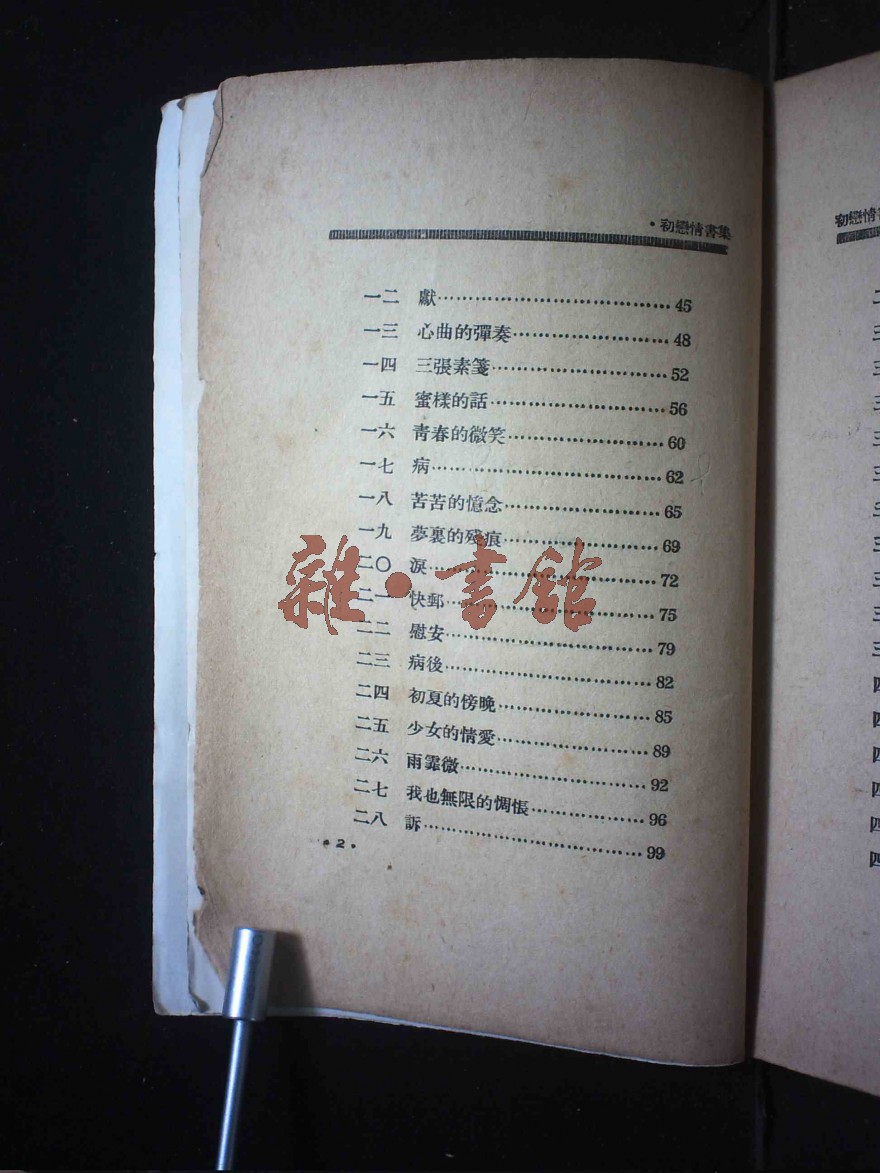 ·初戀情書集
一二 獻……………………………45
一三 心曲的彈奏……………………48
一四 三張素箋………………………52
一五 蜜樣的話………………………56
一六 青春的微笑……………………60
一七 病………………………………62
一八 苦苦的憶念……………………65
一九 夢裏的殘痕……………………69
二〇 淚………………………………72
二一 快郵……………………………75
二二 慰安……………………………79
二三 病後……………………………82
二四 初夏的傍晚……………………85
二五 少女的情愛……………………89
二六 雨霏微…………………………92
二七 我也無限的惆悵………………96
二八 訴………………………………99
·2·
雜·書館
初戀情書